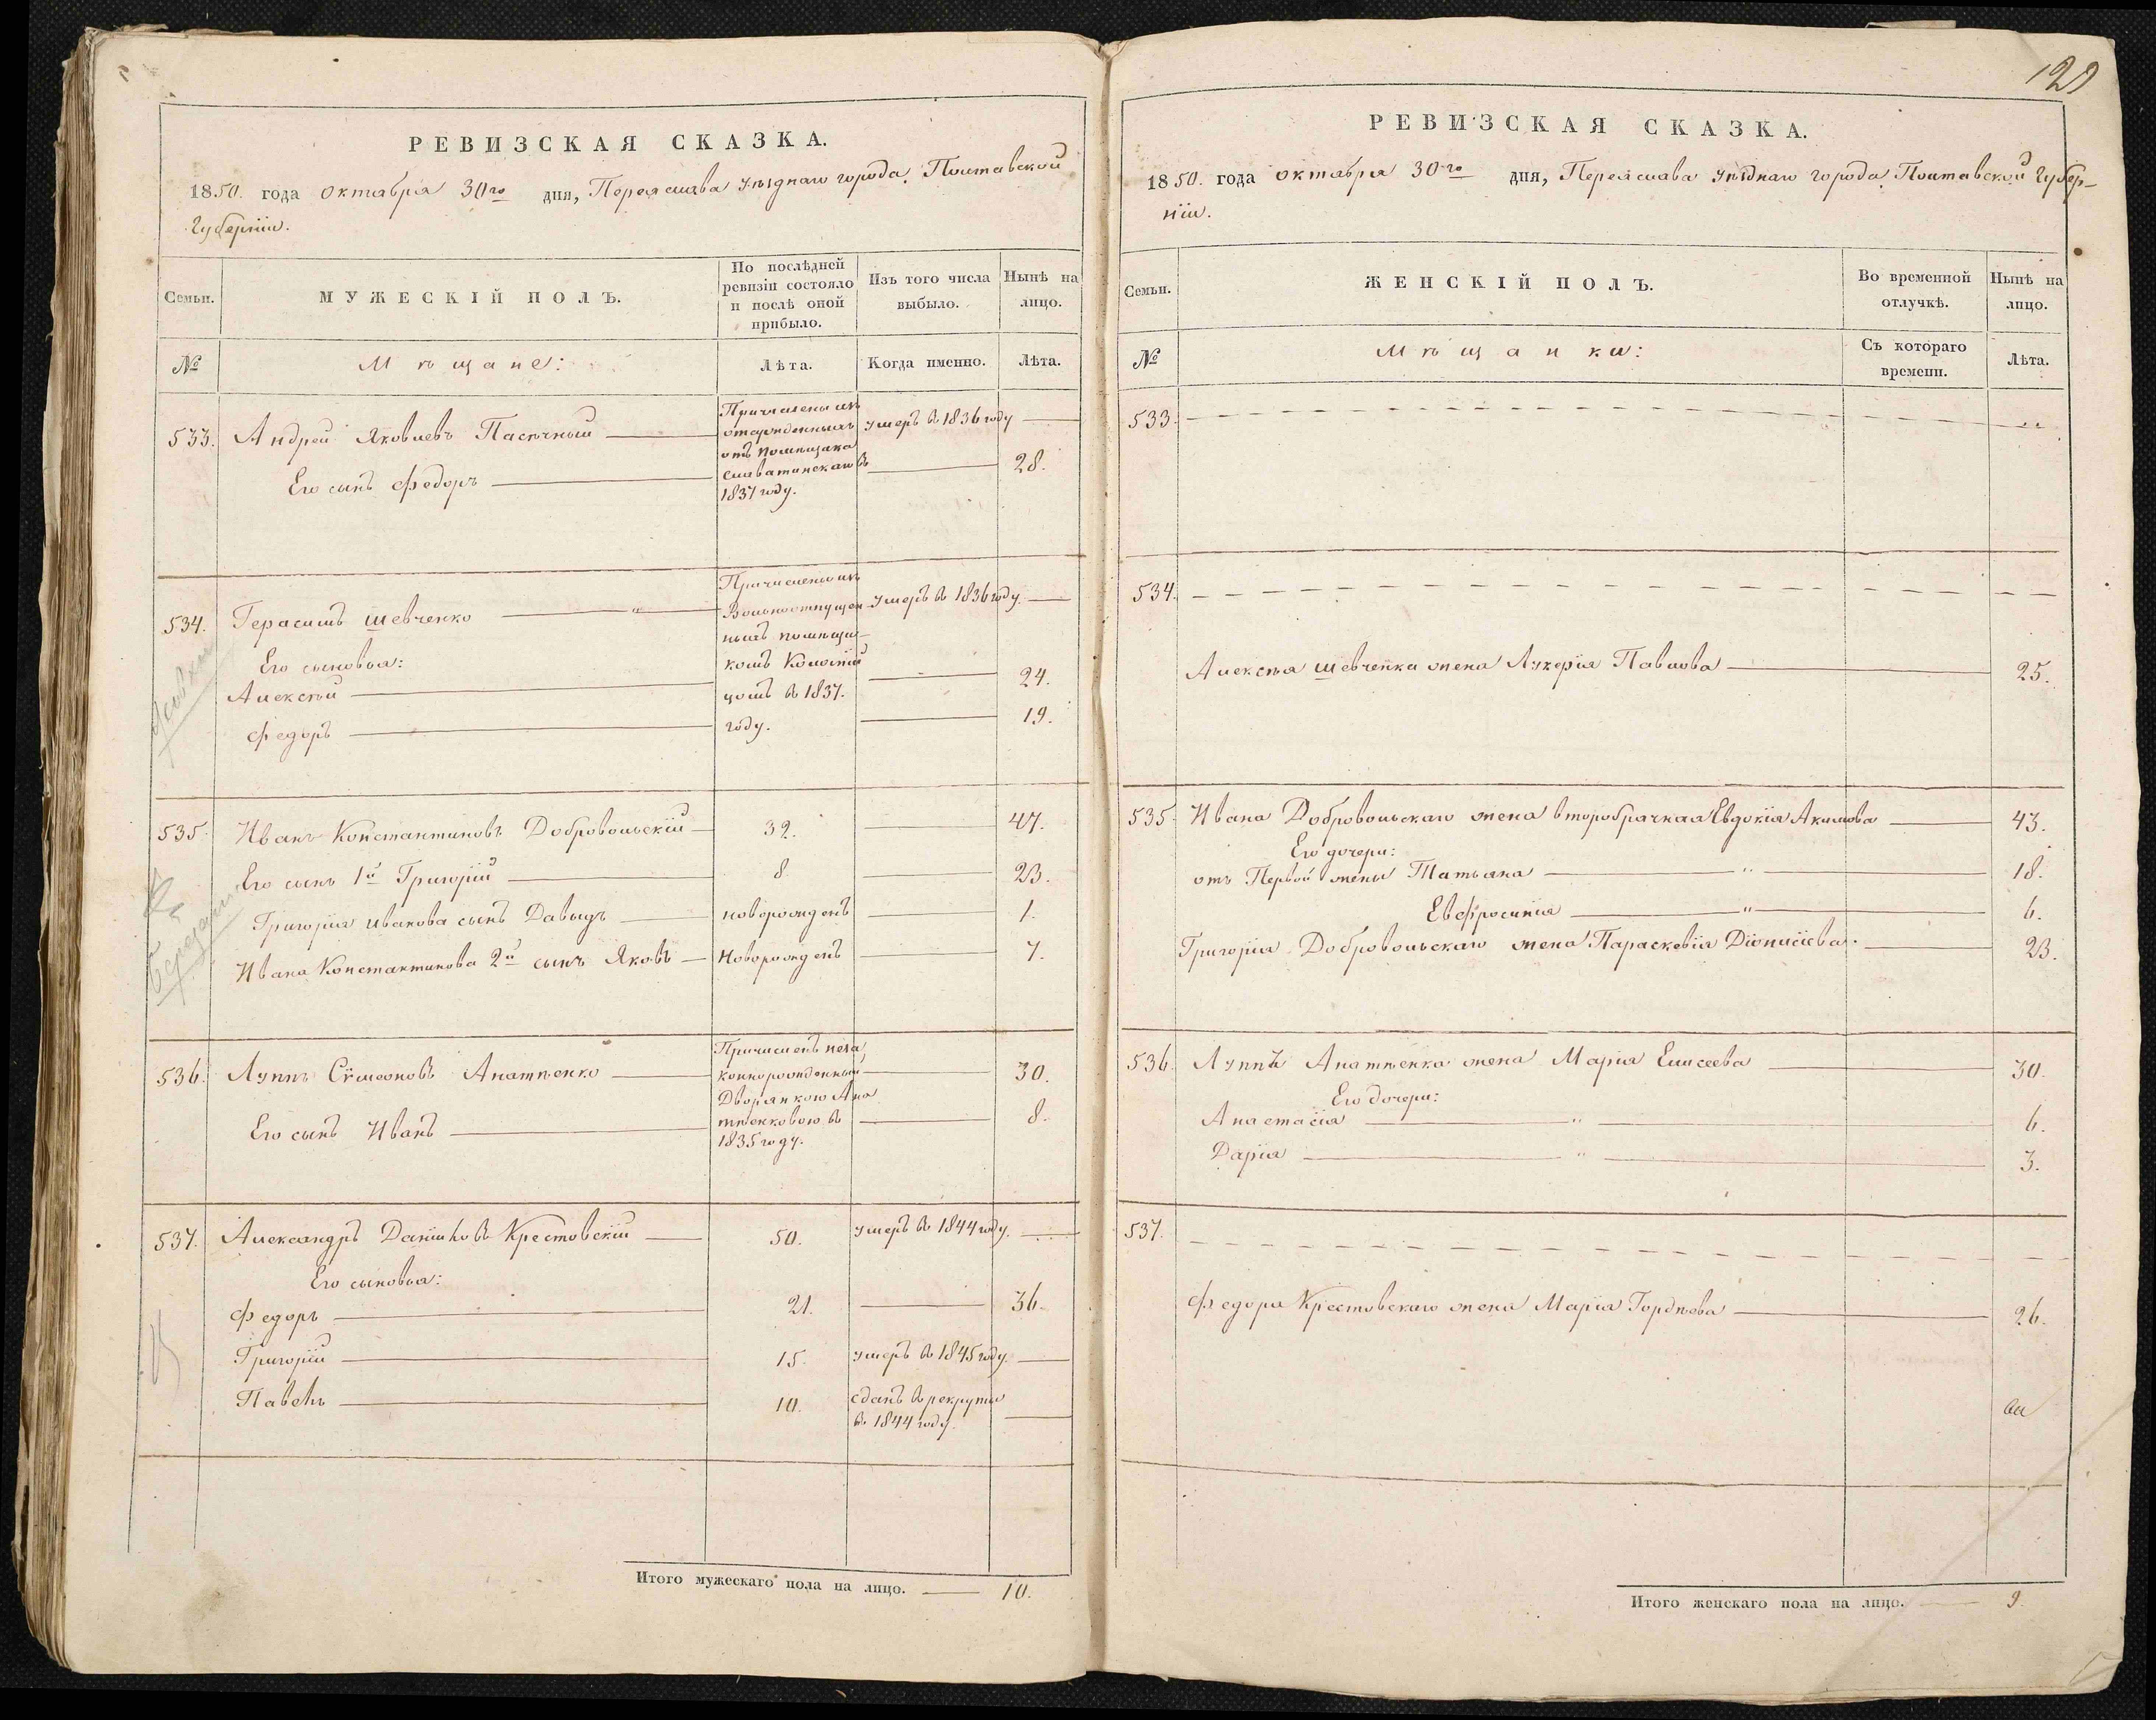 РЕВИЗСКАЯ СКАЗКА.
1850. года октября 30го дня, Переяслава уѣзднаго города, Полтавской
Губерніи.
Семьи.
МУЖЕСКІЙ ПОЛЪ.
По послѣдней
ревизіи состояло
и послѣ оной
прибыло.
Изъ того числа
выбыло.
Нынѣ на
лицо.
№
Мѣщане:
Лѣта.
Когда именно.
Лѣта.
533. Андрей Яковлевъ Пасѣчный
Его сынъ Федоръ
Причислены изъ
отсужденныхъ
отъ помѣщика
въ
1837 году.
умеръ въ 1836 году
28.
534. Герасимъ Шевченко
Его сыновья:
Алексѣй
Федоръ
Причислены изъ
Вольноотпущен-
ныхъ помѣщи-
комъ
въ 1837.
году.
умеръ въ 1836 году.
24.
19.
535. Иванъ Константиновъ Добровольскій 32. 47.
Его сынъ 1й Григорій 8. 23.
Григорія Иванова сынъ Давыдъ новорожденъ 1.
Ивана Константинова 2й сынъ Яковъ Новорожденъ 7.
536. Луппъ Сѷмеоновъ Анатѣенко
Его сынъ Иванъ
Причисленъ неза
коннорожденный
Дворянкою Ана
тѣенковою въ
1835 году.
30.
8.
537. Александръ Даниловъ Крестовскій 50. умеръ въ 1844 году.
Его сыновья:
Федоръ 21. 36.
Григорій 15. умеръ въ 1845 году.
Павелъ 10. сданъ в рекруты
въ 1844 году.
Итого мужескаго пола на лицо. 10.
РЕВИЗСКАЯ СКАЗКА.
1850. года октября 30го дня, Переяслава уѣзднаго города, Полтавской Губер-
ніи.
Семьи.
ЖЕНСКІЙ ПОЛЪ.
Во временной
отлучкѣ.
Нынѣ на
лицо.
№
Мѣщанки:
Съ котораго
времени.
Лѣта.
533.
534.
Алексѣя Шевченка жена Лукерія Павлова 25.
535. Ивана Добровольскаго жена второбрачная Евдокія Акимова 43.
Его дочери:
отъ Первой жены Татьяна 18.
Евфросинія 6.
Григорія Добровольскаго жена Параскевія Діонисіева. 23.
536. Луппа Анатѣенка жена Марія Елисеева 30.
Его дочери:
Анастасія 6.
Дарія 3.
537.
Федора Крестовскаго жена Марія Гордѣева 26.
Итого женскаго пола на лицо. 9.